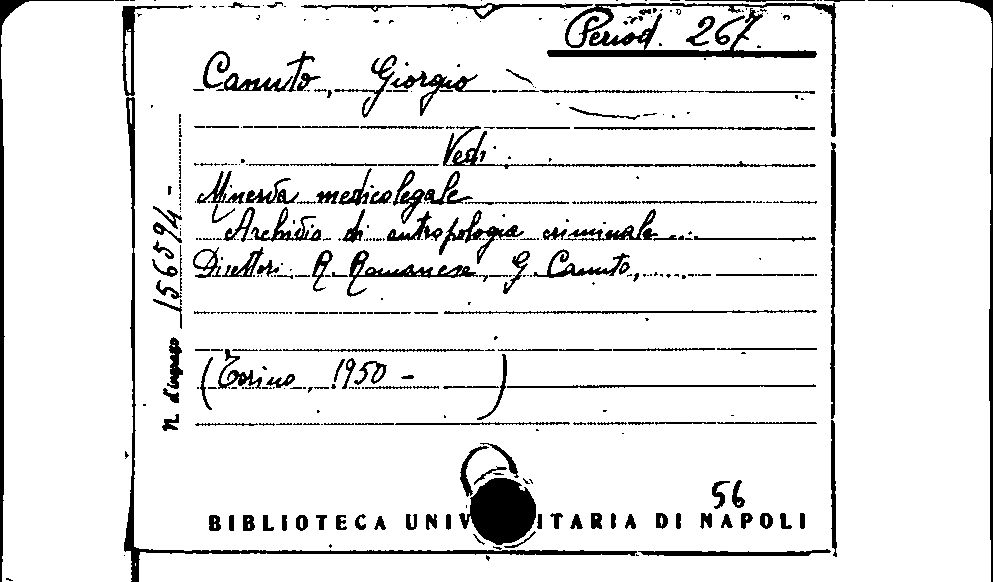 Period. 267.
Canuto, Giorgio
Vedi:
Minerva medicolegale
Archivio di antropologia criminale ...
Direttori: R. Romanese, G. Canuto, .....
(Torino, 1950 - )
N. d'ingresso 156594 -
56
BIBLIOTECA UNIV ITARIA DI NAPOLI